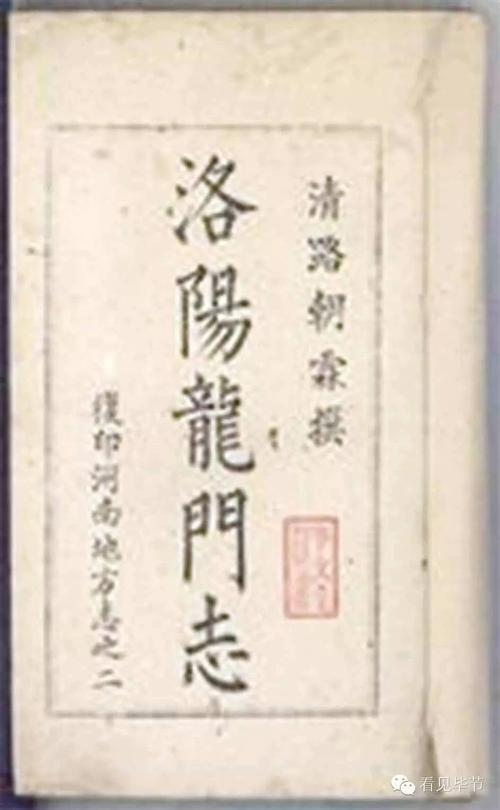 清路朝霖撰
洛陽龍門志
復印河南地方志之二
看见毕节